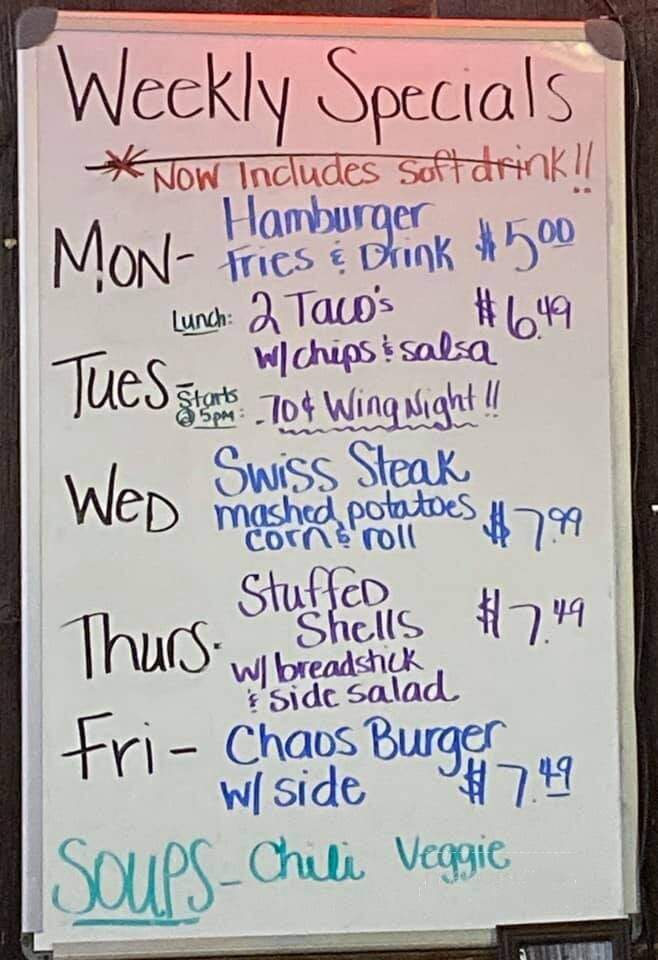 Weekly Specials
* NOW Includes Soft drink!!
MON- Hamburger
fries & Drink $5.00
Lunch: 2 Taco's $6.49
w/chips & salsa
Tues- Starts @ 5pm: .70¢ Wing Night!!
Wed Swiss Steak
mashed potatoes $7.99
corn & roll
Thurs. Stuffed
Shells $7.49
w/ breadstick
& side salad
Fri- Chaos Burger
w/ side $7.49
Soups- Chili Veggie